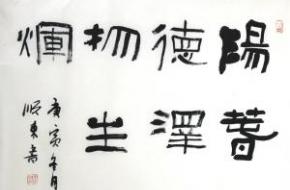 陽春
德澤
物生
煇
庚寅年月
順東書